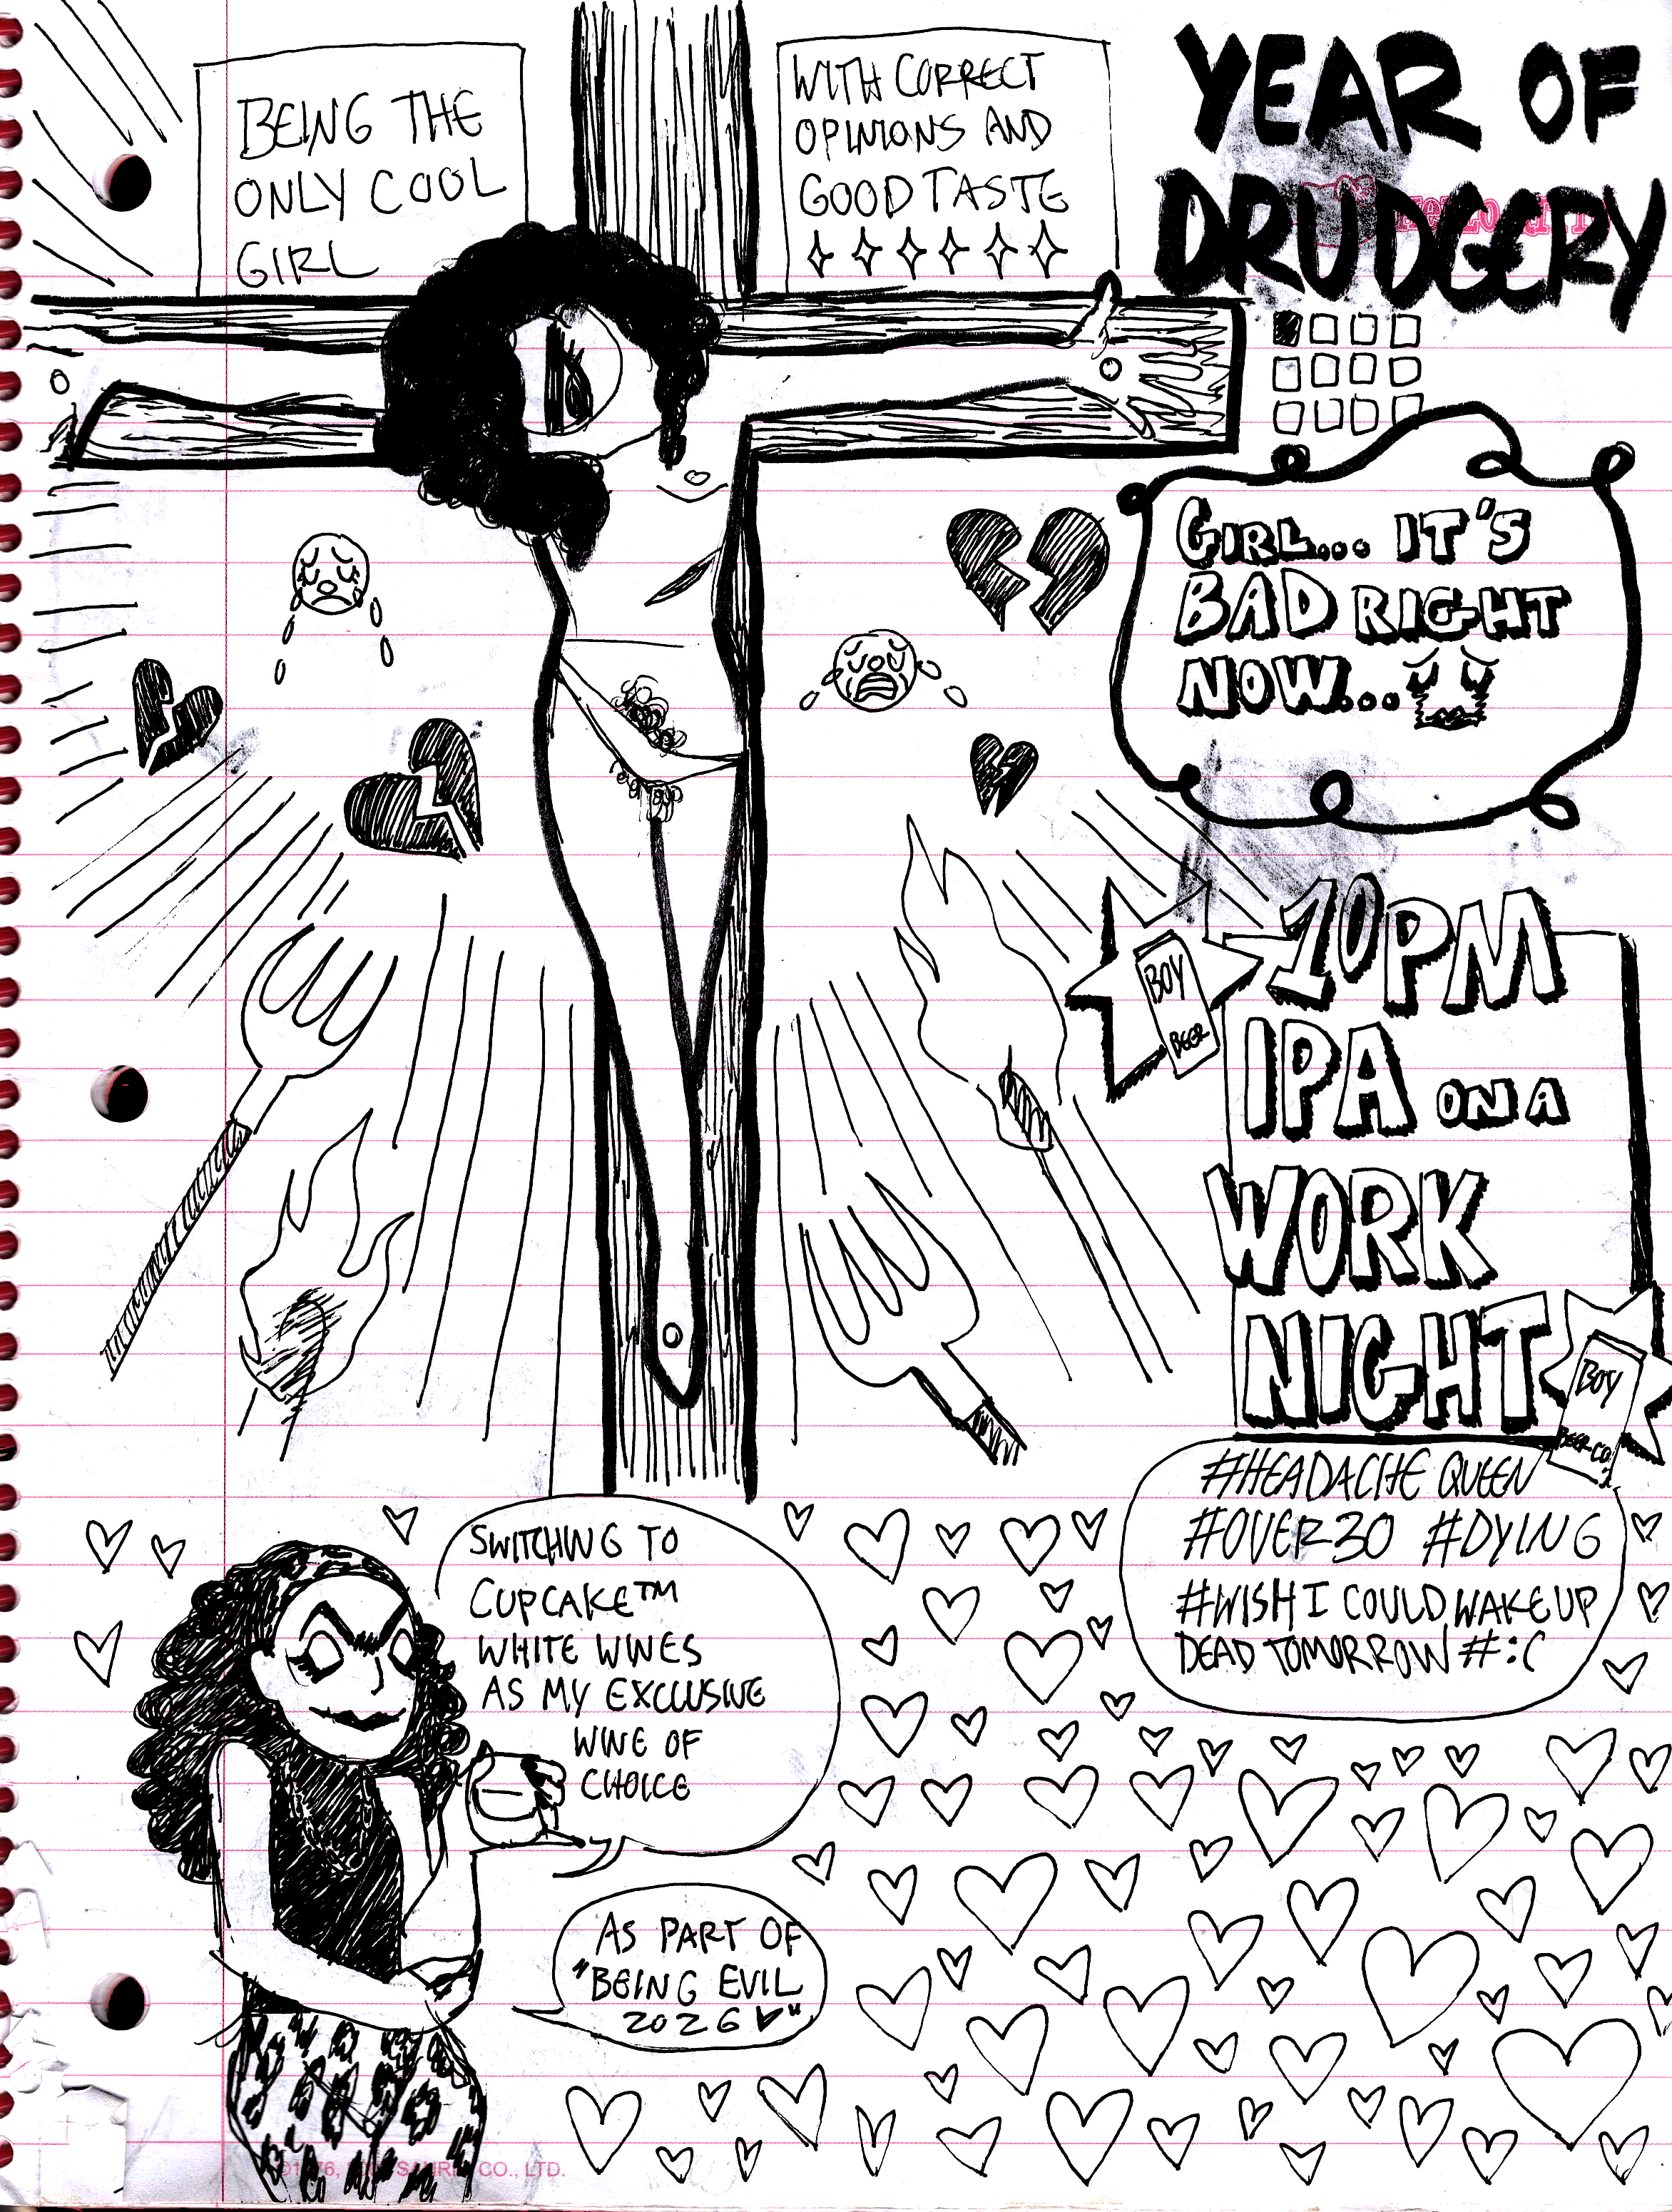 BEING THE
ONLY COOL
GIRL
WITH CORRECT
OPINIONS AND
GOOD TASTE
YEAR OF
DRUDGERY
GIRL... IT'S
BAD RIGHT
NOW...
BOY
BEER
10PM
IPA ON A
WORK
NIGHT
BOY
BEER CO.
#HEADACHE QUEEN
#OVER30 #DYING
#WISH I COULD WAKE UP
DEAD TOMORROW #:(
SWITCHING TO
CUPCAKE™
WHITE WINES
AS MY EXCLUSIVE
WINE OF
CHOICE
AS PART OF
"BEING EVIL
2026 ♥"
CO., LTD.